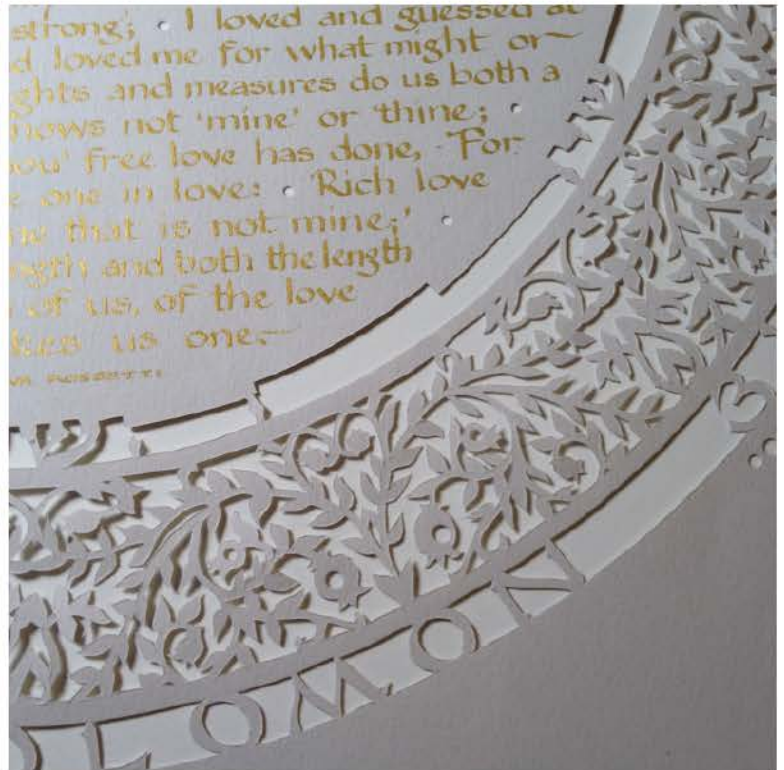 strong; • I loved and guessed at
d loved me for what might or~
ghts and measures do us both a
nows not 'mine' or 'thine;' •
ou' free love has done, 'For
e one in love: • 'Rich love
ne that is not mine;' •
ngth and both the length
of us, of the love
kes us one.~
NA ROSSETTI
LOMON